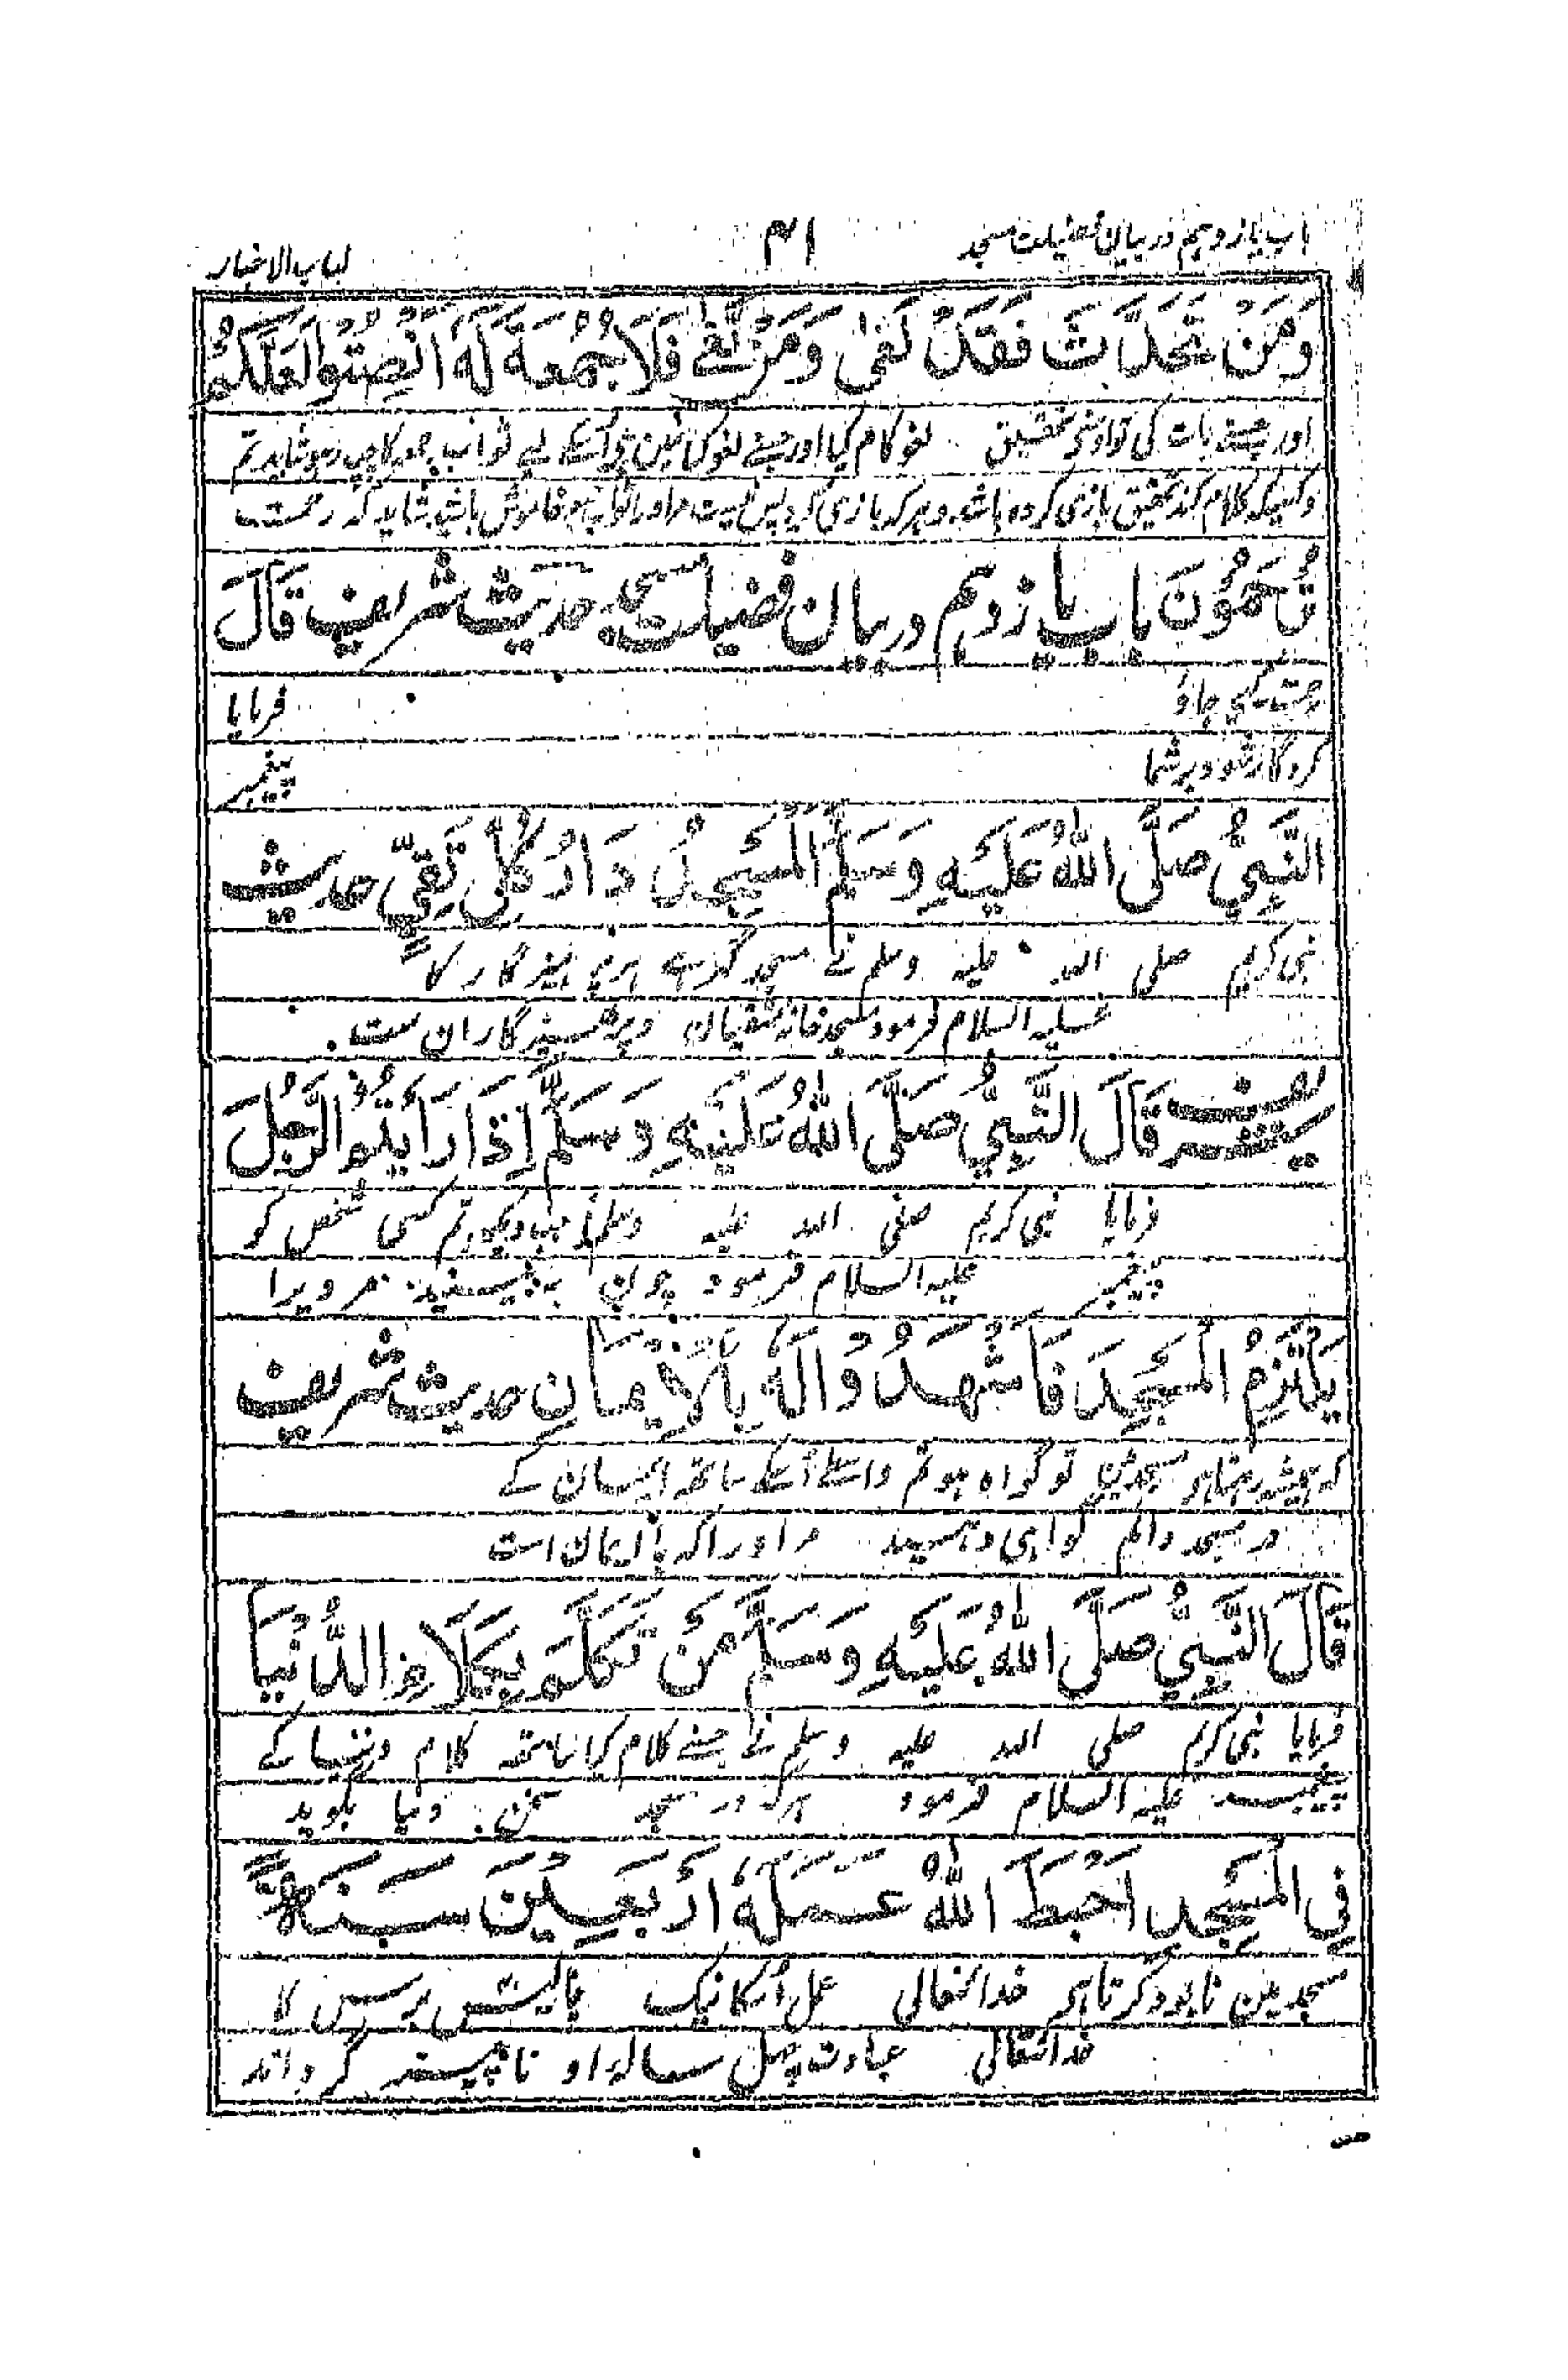 باب یازدہم در بیان فضیلت مسجد
۴۱
لباب الاخبار
وَمَنْ تَحَدَّثَ فَقَدْ لَغٰی وَمَنْ لَّغٰی فَلَا جُمُعَةَ لَهٗ اَنْصِتُوْا لَعَلَّکُمْ
اور جسنے بات کی تو اوسنے تحقیق لغو کام کیا اور جسنے لغو کیا نہین ہے اُسکے لیے ثواب جمعہ کا چپ رہو شاید تم
وکسیکہ کلام کند تحقیق بازی کردہ باشد و ہر کہ بازی کرد پس نیست مر اورا ثواب جمعہ خاموش باشید شاید کہ رحمت
تُرْحَمُوْنَ باب یازدہم در بیان فضیلت مسجد حدیث شریف قَالَ
رحمت کیے جاؤ فرمایا
کردگار شود بر شما پیغمبر
النَّبِیُّ صَلَّی اللّٰهُ عَلَیْهِ وَسَلَّمَ اَلْمَسْجِدُ دَارُ کُلِّ تَقِیٍّ حدیث
نبی کریم صلی اللہ علیہ وسلم نے مسجد گھر ہے ہر پرہیزگار کا
علیہ السلام فرمود مسجد خانہ متقیان و پرہیزگاران ست
شریف قَالَ النَّبِیُّ صَلَّی اللّٰهُ عَلَیْهِ وَسَلَّمَ اِذَا رَاَیْتُمُ الرَّجُلَ
فرمایا نبی کریم صلی اللہ علیہ وسلم نے جب دیکھو تم کسی شخص کو
پیغمبر علیہ السلام فرمود چون بہ بینید مردیرا
یَلْتَزِمُ الْمَسْجِدَ فَاشْهَدُوْا لَهٗ بِالْاِیْمَانِ حدیث شریف
کہ ہمیشہ رہتا ہو مسجد مین تو گواہ ہو تم واسطے اُسکے ساتھ ایمان کے
در مسجد دائم گواہی دہید مر اورا کہ با ایمان است
قَالَ النَّبِیُّ صَلَّی اللّٰهُ عَلَیْهِ وَسَلَّمَ مَنْ تَکَلَّمَ بِکَلَامِ الدُّنْیَا
فرمایا نبی کریم صلی اللہ علیہ وسلم نے جسنے کلام کیا ساتھ کلام دنیا کے
پیغمبر علیہ السلام فرمود ہر کہ در مسجد سخن دنیا بگوید
فِی الْمَسْجِدِ اَحْبَطَ اللّٰهُ عَمَلَهٗ اَرْبَعِیْنَ سَنَةً
مسجد مین نابود کرتا ہے خدا تعالی عمل اُسکا نیک چالیس برس کا
خدا تعالی عبادت چہل سالہ او ناچیز گرداند